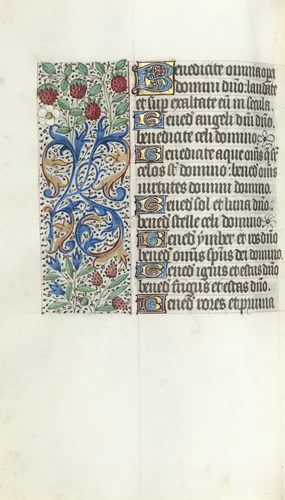 Benedicite omnia opa
domini dño: laudate
et sup exaltate eū in secula.
Bened angeli dñi dño
benedicite celi domino.
Benedicite aque oñis q̄ sr̄
celos st̄ domino: bened oñis
uirtutes domini domino.
Bened sol et luna dño:
bened stelle celi domino.
Bened ymber et ros dño
bened omīs spūs dei domino
Bened ignis et estus dño
bened frigus et estas dño.
Bened rores et pruina